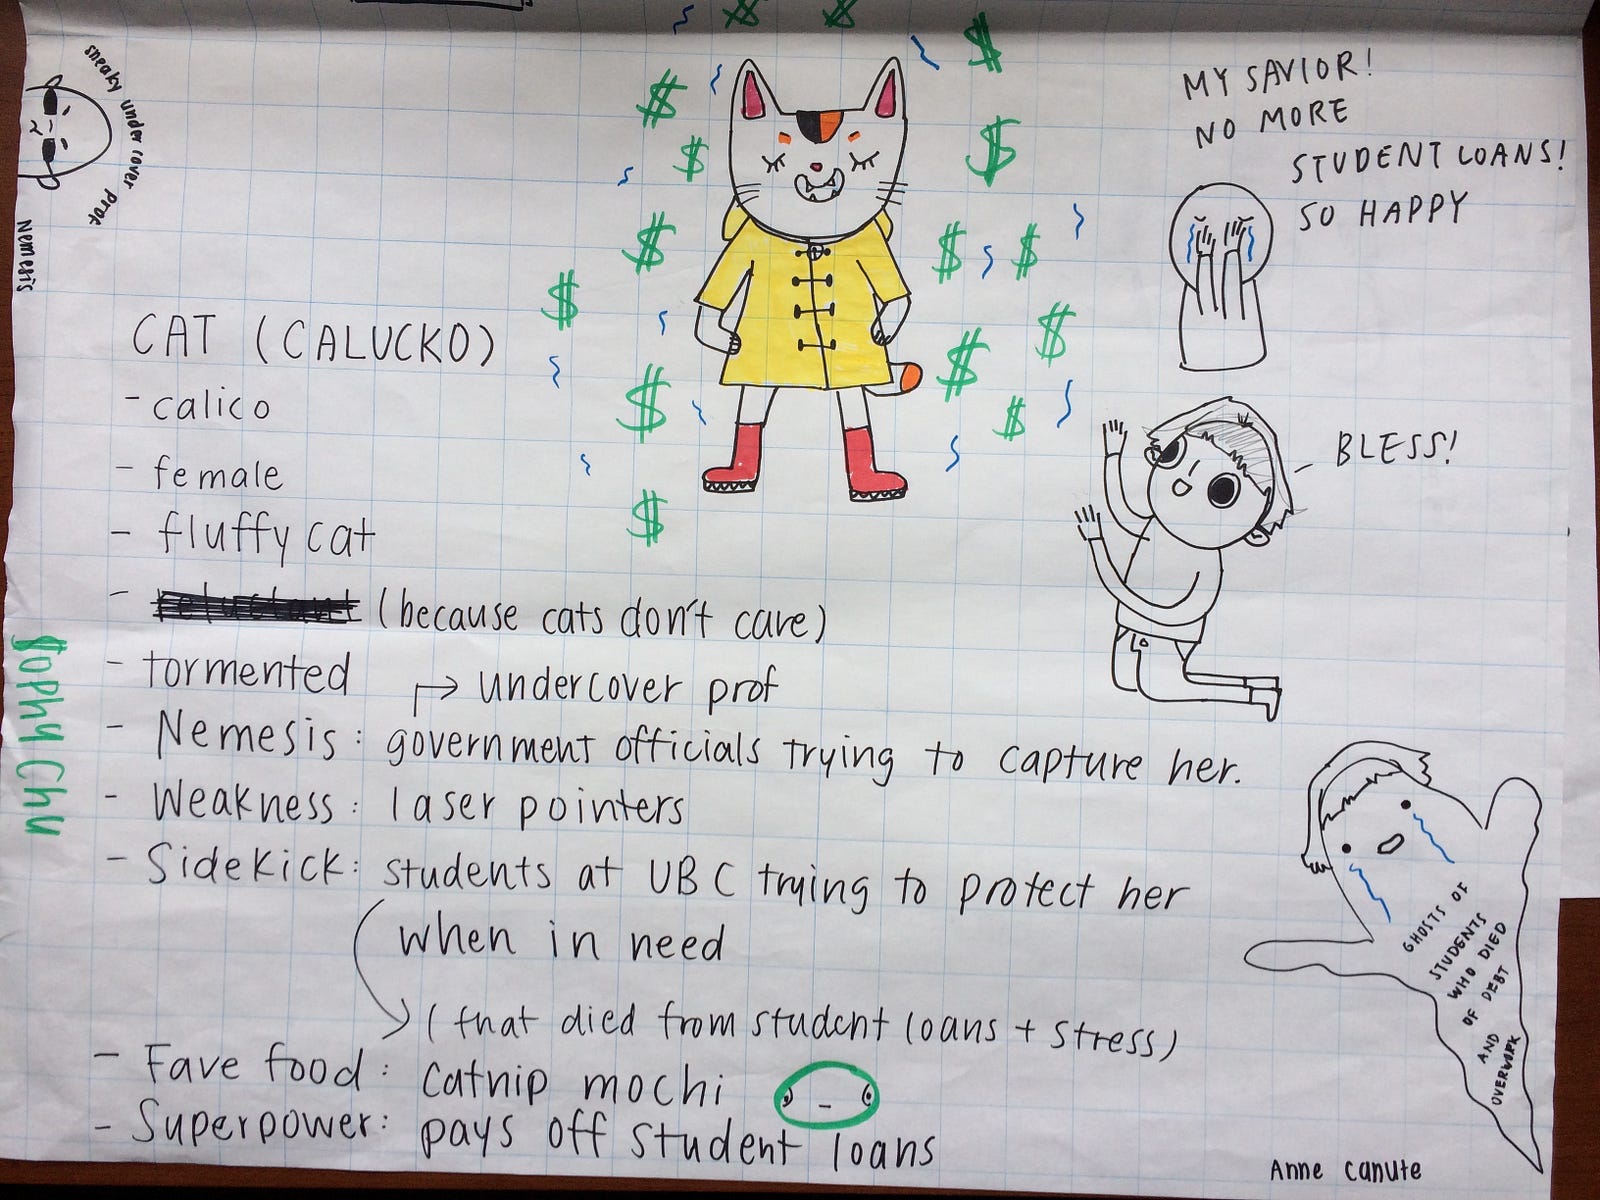 sneaky under cover prof
Nemesis
MY SAVIOR!
NO MORE
STUDENT LOANS!
SO HAPPY
BLESS!
CAT (CALUCKO)
- calico
- female
- fluffy cat
- reluctant (because cats don't care)
- tormented
→ undercover prof
- Nemesis: government officials trying to capture her.
- Weakness: laser pointers
- Sidekick: students at UBC trying to protect her
when in need
(that died from student loans + stress)
- Fave food: catnip mochi
- Superpower: pays off student loans
$ophy Chu
GHOSTS OF
STUDENTS
WHO DIED
OF DEBT
AND
OVERWORK
Anne Canute